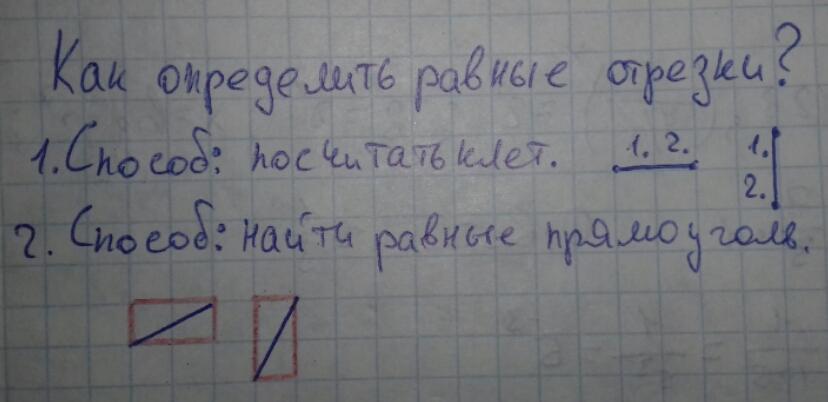 Как определить равные отрезки?
1. Способ: посчитать клет. 1. 2. 1.
2.
2. Способ: найти равные прямоуголь.